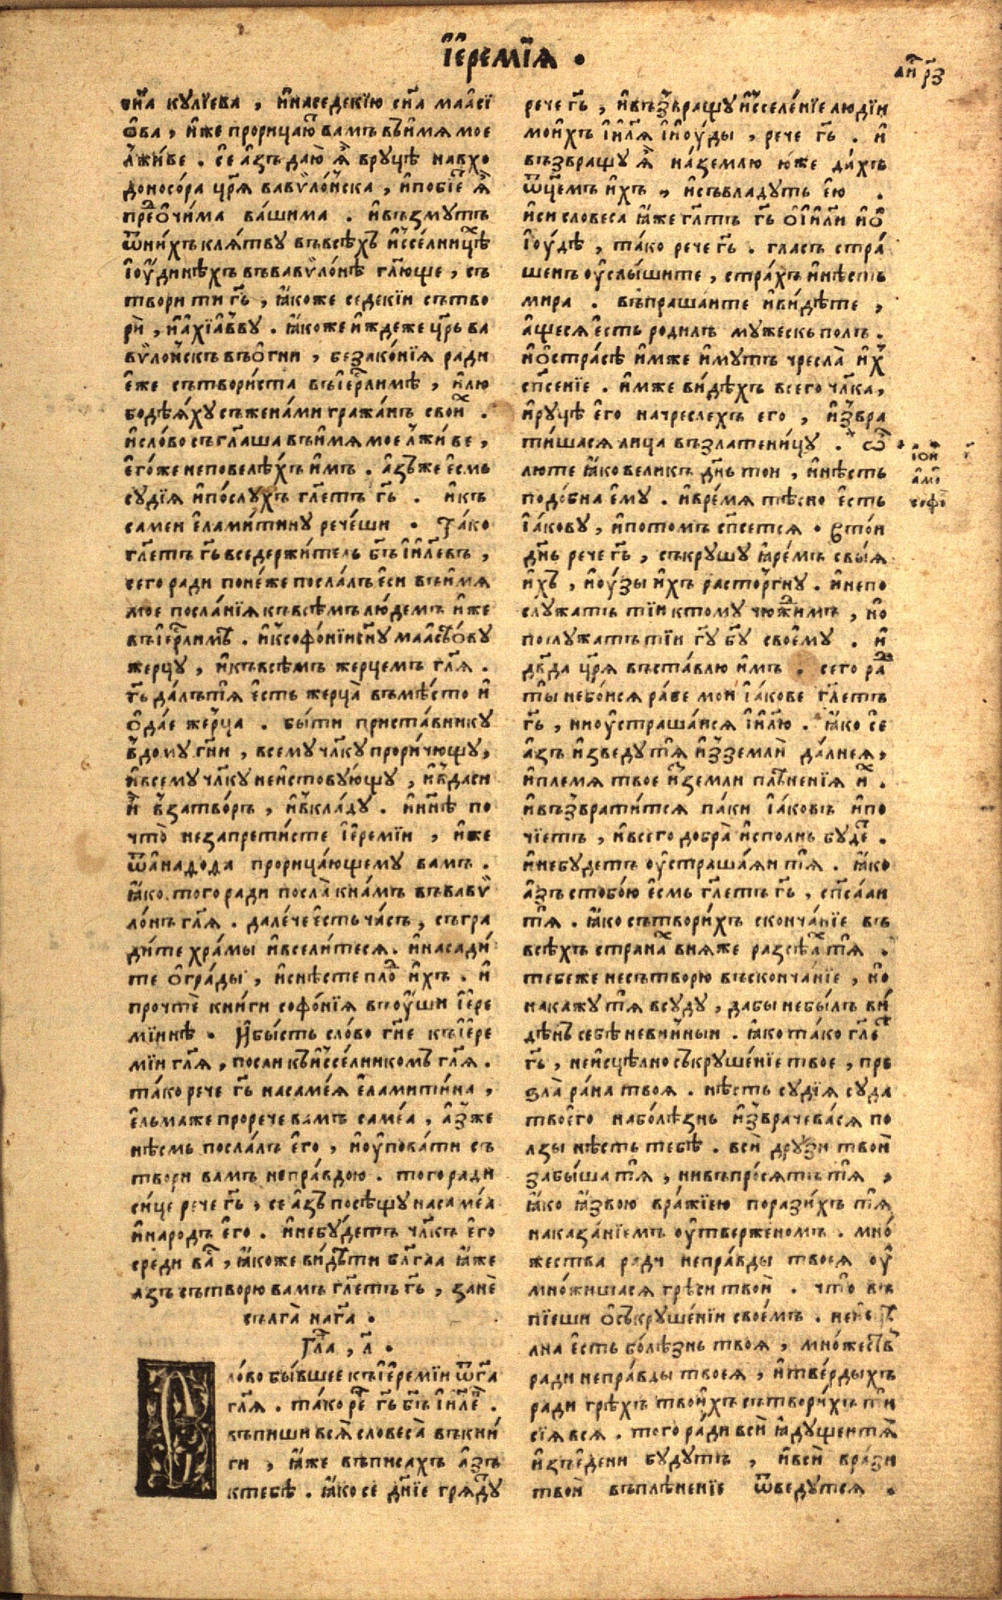 І҆еремїꙗ .
сн҃а кулїева , и҆ на седекїю сн҃а маасї
ѻ҆ва , и҆же прорицаю вамъ въ и҆мѧ мое
лживе . се а҆зъ даю ѧ҆ в руцѣ навхо
доносора цр҃ѧ вавѷлонска , и҆ побїет ѧ҆
пред ѻ҆чима вашима . и҆ възмутъ
ѿ них клѧтву въ всѣхъ и҆сселницѣ
і҆оудинѣхъ въ вавѷлонѣ гл҃юще , съ
твори ти гь҃ , ꙗ҆коже седекїи сътво
ри , и҆ а҆хїавву . ꙗ҆коже и҆ждеже цр҃ь ва
вѷлонскъ въ ѻ҆гни , безаконїѧ ради
е҆же сътвориста въ і҆ерл҃имѣ , и҆ лю
бодѣѧху съ женами гражанъ своих .
и҆ слово съгл҃аша въ и҆мѧ мое лживе ,
е҆гоже не повелѣхъ и҆мъ . а҆зъ же е҆смь
судїѧ и҆ послухъ гл҃етъ гь҃ . и҆ къ
самеи е҆ламитину речеши . Тако
гл҃етъ гь҃ вседержитель бг҃ъ і҆ил҃евъ ,
сего ради понеже послалъ е҆си въ и҆мѧ
мое посланїѧ къ всѣмъ людемъ и҆же
въ і҆ерл҃имѣ . и҆ къ софонїи сн҃у маасѣову
жерцу , и҆ къ всѣмъ жерцемъ гл҃ѧ .
гь҃ далъ тѧ есть жерца въ мѣсто и҆
ѻ҆дае жерца . быти приставнику
в дому гн҃и , всему чл҃ку проричющу ,
и҆ всему чл҃ку неистовующу , и҆ вдаси
и҆ в затворъ , и҆ в кладу . и҆ нн҃ѣ по
что не запретисте і҆еремїи , и҆же
ѿ а҆надода прорицающему вамъ .
ꙗ҆ко того ради посла к намъ въ вавѷ
лонъ гл҃ѧ . далече есть часъ , съгра
дите храмы и҆ вселитесѧ . и҆ насади
те ѻ҆грады , и҆ снѣсте плод и҆хъ . и҆
прочте книги софонїѧ въ оуши і҆ере
мїинѣ . И҆ бысть слово гн҃е къ і҆ере
мїи гл҃ѧ , посли къ и҆сселникомъ гл҃ѧ .
тако рече гь҃ на самеѧ е҆ламитина ,
е҆льмаже прорече вамъ самеа , аз же
нѣсмь послалъ его , и҆ оуповати съ
твори вамъ неправдою . того ради
сице рече гь҃ , се азъ посѣщу на самеа
и҆ народъ е҆го . и҆ небудетъ чл҃къ е҆го
среди вас , ꙗ҆коже видѣти блг҃аа ꙗ҆же
азъ сътворю вамъ гл҃етъ гь҃ , зане
сълга на га҃ .
Гла , л҃ .
лово бывшее къ і҆еремїи ѿ га҃
гл҃ѧ . тако рече гь҃ бг҃ъ і҆ил҃евъ .
въпиши всѧ словеса въ кни
ги , ꙗ҆же въписахъ азъ
к тебѣ . ꙗ҆ко се дн҃їе грѧдут
рече гь҃ , и҆ възвращу и҆сселенїе людїи
моихъ і҆ил҃ѧ и҆ і҆оуды , рече гь҃ . и҆
възвращу ѧ҆ на землю юже дахъ
ѿцемъ ихъ , и҆ съвладутъ ею .
и҆ си словеса ꙗ҆же гл҃етъ гь҃ ѻ҆ і҆ил҃и и҆ ѻ҆
і҆оудѣ , тако рече гь҃ . гласъ стра
шенъ оуслышите , страхъ и҆ нѣсть
мира . въпрашаите и҆ видѣте ,
аще сѧ есть родилъ мужескъ полъ .
и҆ ѻ҆ страсѣ и҆мже и҆мутъ чресла и҆х
сп҃сенїе . и҆мже видѣхъ всего чл҃ка ,
и҆ руцѣ е҆го на чреслехъ его , и҆зъвра
тишасѧ лица въ златеницу . ѽ
люте ꙗ҆ко великъ дн҃ь тои , и҆ нѣсть
подобна ему . и҆ времѧ тѣсно есть
і҆акову , и҆ потомъ сп҃сетсѧ . В той
дн҃ь рече гь҃ , съкрушу ꙗ҆ремъ съ выѧ
и҆хъ , и҆ оузы ихъ расторгну . и҆ не по
служатъ тїи к тому чюжимъ , но
послужатъ тїи гу҃ бг҃у своему . и҆
дв҃да цр҃ѧ въставлю и҆мъ . сего рад
ты не боисѧ раве мои і҆акове гл҃етъ
гь҃ , ни оустрашаисѧ і҆ил҃ю . ꙗ҆ко се
азъ и҆зведу тѧ и҆з земли далнеѧ ,
и҆ племѧ твое и҆з земли плѣненїѧ их .
и҆ възвратитсѧ паки і҆аковъ и҆ по
чїетъ , и҆ всего добра исполнь будет .
и҆ небудетъ оустрашаѧи тѧ . ꙗ҆ко
азъ с тобою есмь гл҃етъ гь҃ , сп҃саѧи
тѧ . ꙗ҆ко сътворихъ скончанїе въ
всѣхъ странах в нѧже разсѣѧх тѧ .
тебеже не сътворю въ скончанїе , но
накажу тѧ в суду , да бы небылъ ви
дѣнъ себѣ невинныи . ꙗ҆ко тако гл҃етъ
гь҃ , неисцѣлно съкрушенїе твое , прѣ
зла рана твоѧ . нѣсть судїѧ суда
твоего на болѣзнь изврачевасѧ по
лзы нѣсть тебѣ . вси друзи твои
забыша тѧ , ни въпросѧтъ тѧ ,
ꙗ҆ко ꙗ҆звою вражїею поразихъ тѧ
наказанїемъ оутверженомъ . мно
жества ради неправды твоеѧ оу
множишасѧ грѣси твои . что въ
пїеши ѻ҆ съкрушенїи своемъ .
лна есть болѣзнь твоѧ , множества
ради неправды твоеѧ , и҆ твердыхъ
ради грѣхъ твоихъ сътворихъ ти
сїѧ всѧ . того ради вси ꙗ҆дущеи тѧ
и҆зъѣдени будутъ , и҆ вси врази
твои въ плѣненїе ѿведутсѧ .